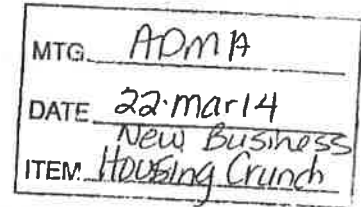 MTG. ADMA
DATE 22·Mar14
New Business
ITEM Housing Crunch